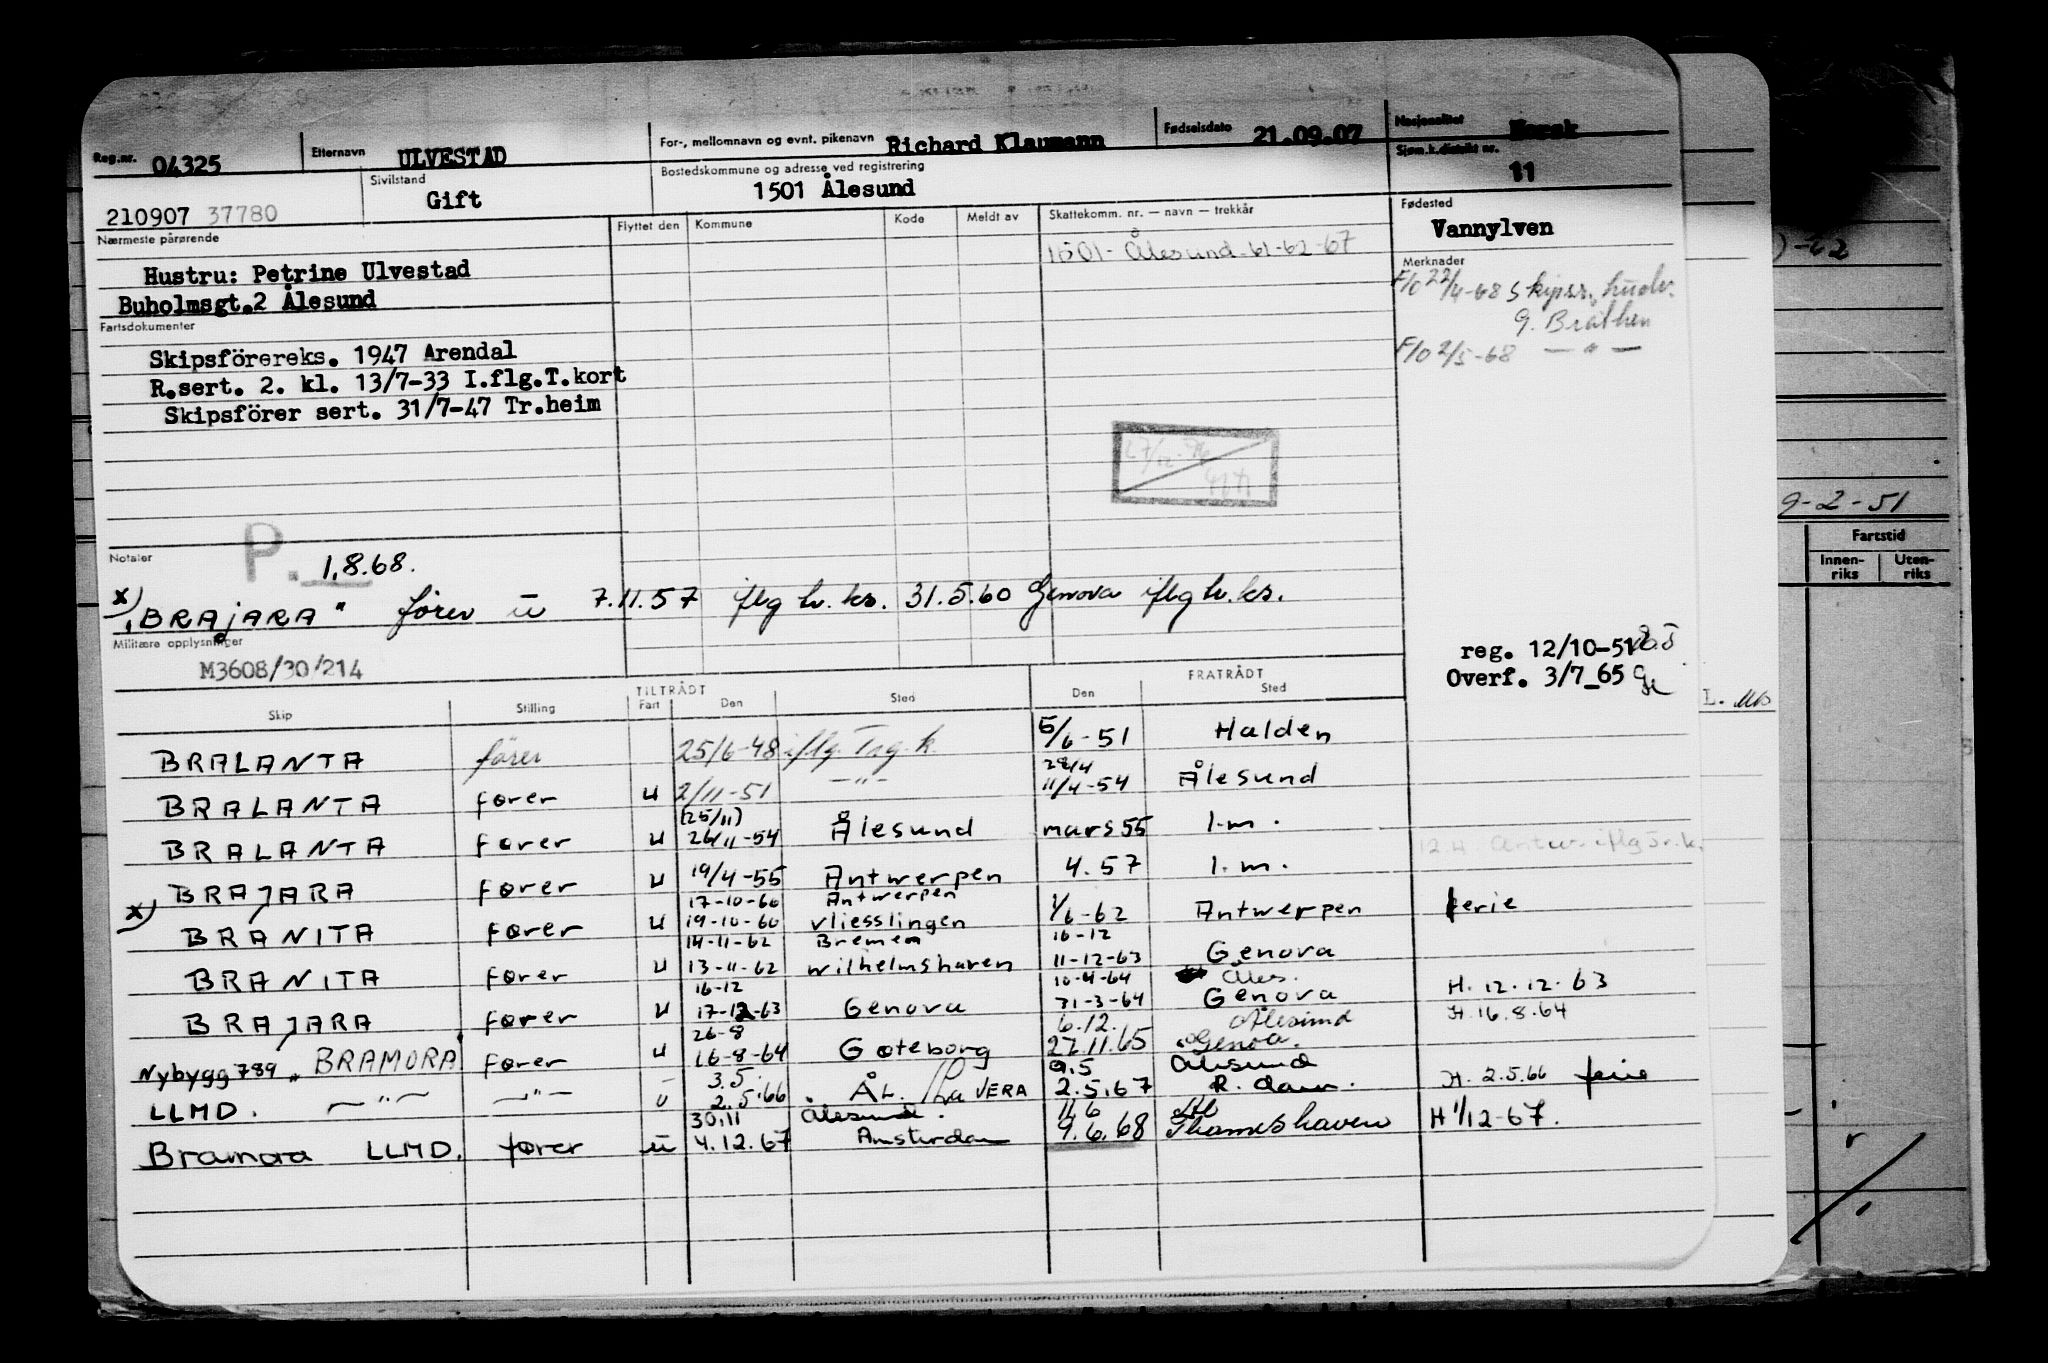 Reg.nr. 04325 Etternavn ULVESTAD For-, mellomnavn og evnt. pikenavn Richard Klaumann Fødselsdato 21.09.07 Nasjonalitet Norsk
210907 37780 Sivilstand Gift Bostedskommune og adresse ved registrering 1501 Ålesund Sjøm.k.distrikt nr. 11
Nærmeste pårørende Flyttet den Kommune Kode Meldt av Skattekomm. nr. — navn — trekkår Fødested
Vannylven
1501- Ålesund-61-62-67
Hustru: Petrine Ulvestad
Buholmsgt.2 Ålesund
Merknader
F/O 22/4-68 Skipsr.
G. Bråthen
F/O 2/5-68 — " —
Fartsdokumenter
Skipsförereks. 1947 Arendal
R.sert. 2. kl. 13/7-33 I.flg.T.kort
Skipsförer sert. 31/7-47 Tr.heim
9-2-51
Fartstid
Innen-riks Uten-riks
Notater P. 1.8.68.
x) "BRAJARA" fører u 7.11.57 iflg hv.ks. 31.5.60 Genova iflg hv.ks.
Militære opplysninger
M3608/30/214
reg. 12/10-51
Overf. 3/7_65
TILTRÅDT FRATRÅDT
Skip Stilling Fart Den Sted Den Sted
BRALANTA fører 25/6-48 iflg. Trg.k 5/6-51 Halden
28/4
BRALANTA fører u 2/11-51 —"— 11/4-54 Ålesund
(25/11)
BRALANTA fører u 26/11-54 Ålesund mars 55 l.m.
12.4 Antw. iflg Tr.k.
BRAJARA fører u 19/4-55 Antwerpen 4.57 l.m.
17-10-60 Antwerpen
x) BRANITA fører u 19-10-60 vliesslingen 1/6-62 Antwerpen ferie
14-11-62 Bremen 16-12
BRANITA fører u 13-11-62 wilhelmshaven 11-12-63 Genova
16-12 10-4-64 Åles.
BRAJARA fører u 17-12-63 Genova 31-3-64 Genova H. 12.12.63
26-8 6.12. Ålesund H.16.8.64
Nybygg 789 " BRAMORA fører u 16-8-64 Gøteborg 27.11.65 Genoa.
3.5. 9.5 Ålesund
LLMD. —"— —"— u 2.5.66 ÅL. / La VERA 2.5.67 R.dam. H. 2.5.66 ferie
30.11 Ålesund. 11.6
Bramora LLMD. fører u 4.12.67 Amsterdam 9.6.68 Thameshaven H 1/12-67.